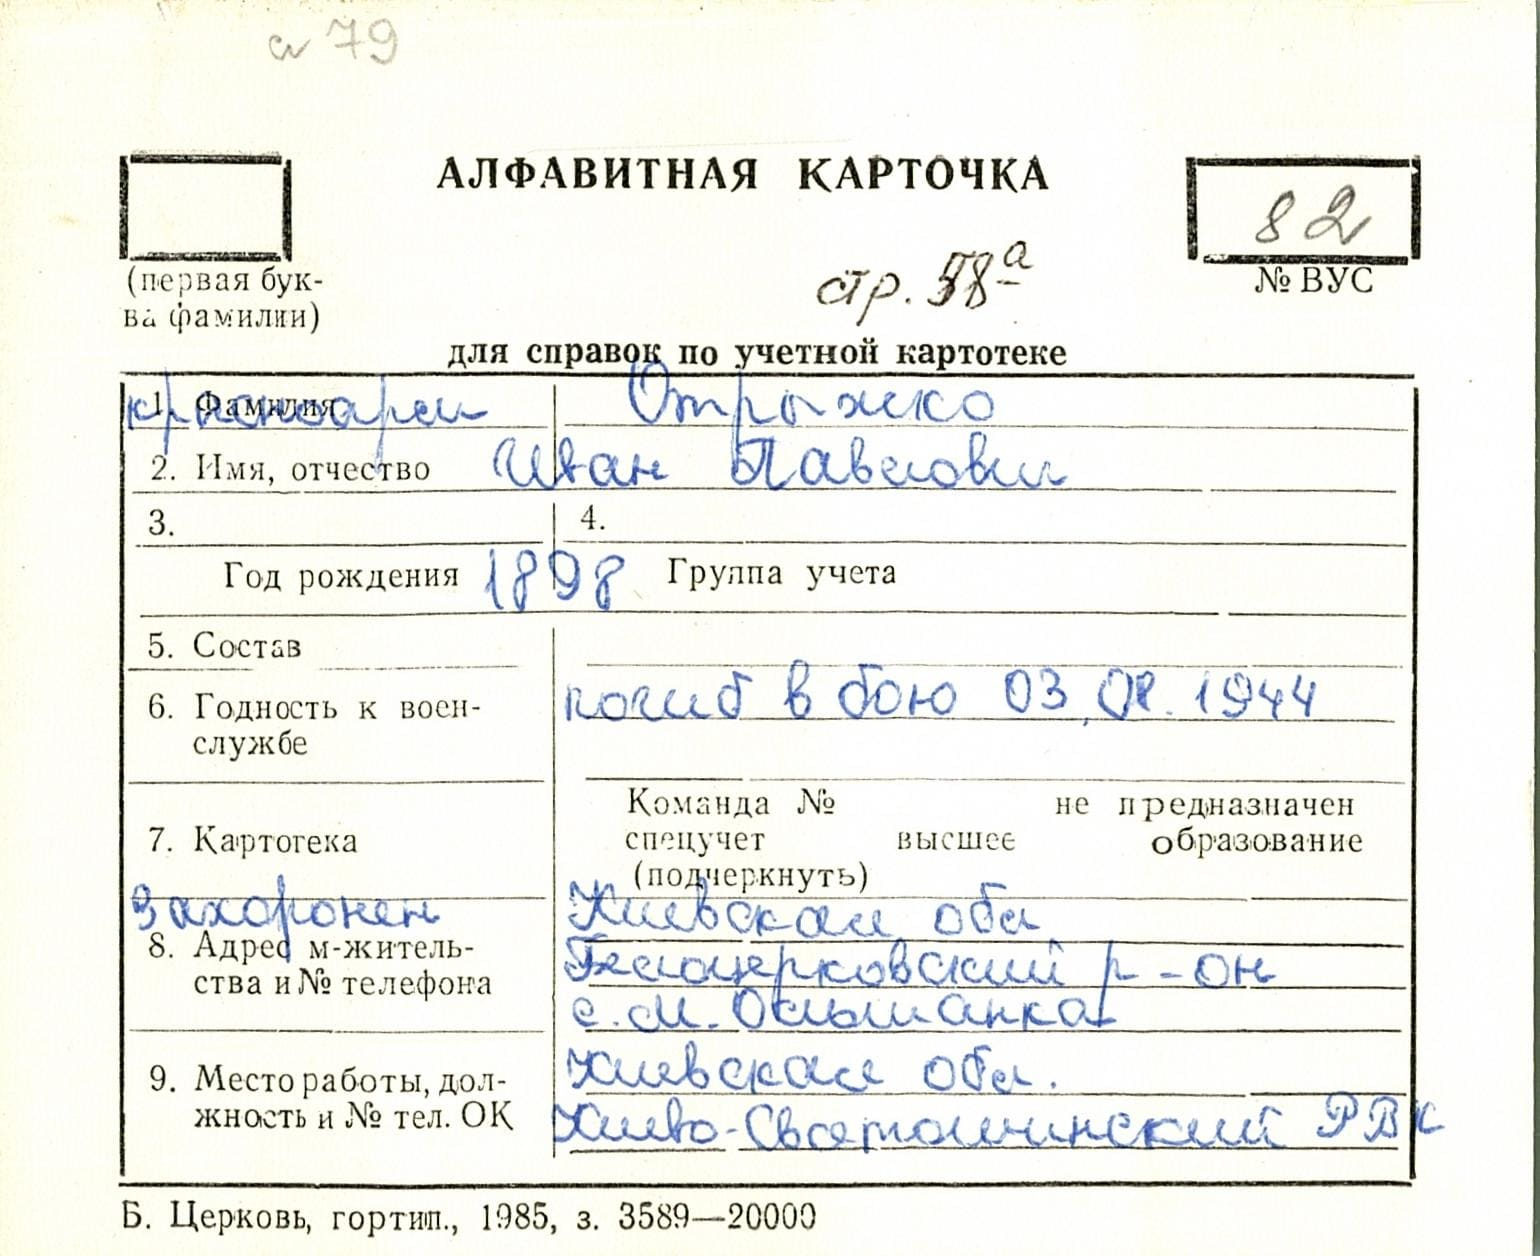 а 79
АЛФАВИТНАЯ КАРТОЧКА
82
(первая бук-
ва фамилии)
№ ВУС
стр. 58а
для справок по учетной картотеке
1. Фамилия красноарм Отрышко
2. Имя, отчество Иван Павлови
3. 4.
Год рождения 1898 Группа учета
5. Состав
6. Годность к воен-
службе
погиб в бою 03.01.1944
7. Картотека
Команда № не предназначен
спецучет высшее образование
(подчеркнуть)
захоронен Киевская обл
8. Адрес м-житель-
ства и № телефона
Белоцерковский р-он
с. М. Ольшанка
9. Место работы, дол-
жность и № тел. ОК
Киевская обл.
Киево-Святошинский РВК
Б. Церковь, гортип., 1985, з. 3589—20000